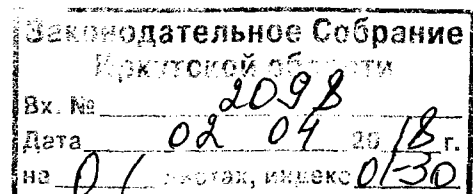 Законодательное Собрание
Иркутской области
Вх. № 2098
Дата 02 04 2018 г.
на 01 листах, индекс 01-30